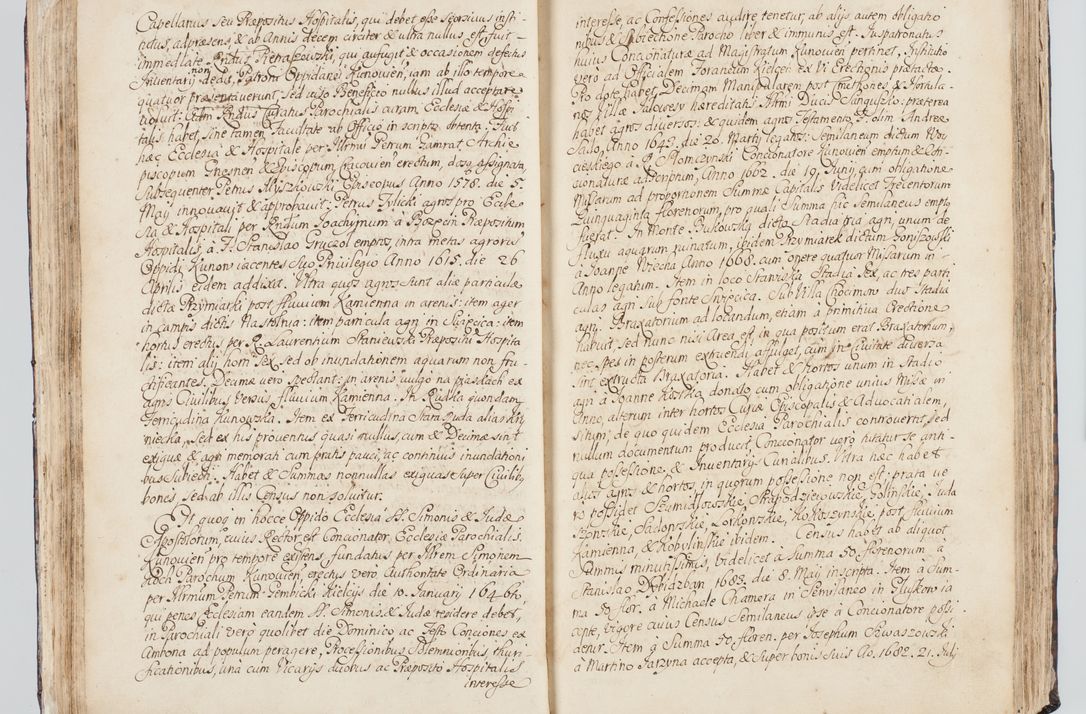 Capellanus seu Præpositus Hospitalis, qui debet esse seorsivus insti-
tutus, adpræsens, & ab Annis decem circiter & ultra nullus est, fuit
immediate Pndus Pietrapkowski, qui aufugit, & occasionem defectus
Inventarij non dedit, Patroni Oppidani Kunovien, iam ab illo tempore
quatuor præsentaverunt, sed viso Beneficio nullus illud acceptare
voluit: Curatus Parochialis curam Ecclesiæ & Hospi-
talis habet, sine tamen facultate ab Officio in scriptis obtenta: Fuit
hæc Ecclesia & Hospitale per Illrmum Petrum Gamrat Archie
piscopum Gnesnen & Episcopum Cracovien erectum, dote assignata,
Subsequenter Petrus Myszkowski Episcopus Anno 1578. die 5.
Maij innovavit & approbavit: Petrus Tylicki agros pro Eccle
sia & Hospitali per Rndum Joachymum à Præpositum
Hospitalis, à F. Stanislao Gruczol emptos, intra metas agrorum
Oppidi Kunow iacentes suo Privilegio Anno 1615. die 26
Aprilis eidem addixit. Ultra quos agros sunt aliæ particulæ
dictæ Przymiarki post fluvium Kamienna in arenis: item ager
in campis dictis Nastolnia: item particula agri in Swięcica: item
hortus erectus per R. Laurentium Staniewski Præpositu Hospita
lis: item alij horti sex, sed ob inundationem aquarum non fru-
ctificantes. Decimæ vero spectant: in arenis vulgo na piaskach ex
agris Civilibus versus fluvium Kamienna. In Rudka quondam
Ferricudina Kunowska. Item ex Ferricudina Stara ruda alias Krzy
niecka, sed ex his proventus quasi nullus, cum & Decimæ sint
exiguæ & agri memorati cum pratis pauci, ac continuis inundationi
bus subiecti. Habet & Summas nonnullas exiguas super Civilibus
bonis, sed ab illis Census non solvitur.
Est quoq in hocce Oppido Ecclesia SS. Simonis & Judæ
Apostolorum, cuius Rector est Concionator Ecclesiæ Parochialis
Kunovien pro tempore existens, fundatus per Adrem Simonem
Parochum Kunovien, erectus vero Authoritate Ordinaria
per Illrmum Petrum Gembicki Kielcijs die 10. Januarij 1646to
qui penes Ecclesiam eandem SS. Simonis & Judæ residere debet,
in Parochiali verò quolibet die Dominico ac Festo Conciones ex
Ambona ad populum peragere, Processionibus Solemnioribus, thuri
ficationibus, una cum Vicarijs duobus ac Præposito Hospitalis
interesse
interesse, ac Confessiones audire tenetur, ab alijs autem obligatio
nibus & subiectione Parocho liber & immunis est. Juspatronatus
huius Concionaturæ ad Magistratum Kunovien pertinet, Institutio
vero ad Officialem Foraneum Kielcen ex vi Erectionis præfatæ.
Pro dote habet Decimam Manipularem post Cmethones & Hortula-
nos Villæ hereditatis Illrmi Ducis Sangusko: præterea
habet agros diversos: & quidem agros Testamento F. olim Andreæ
Sado, Anno 1645. die 26. Martij legatos: Semilaneum dictum Woy
cieskiego à R. Słomczynski Concionatore Kunovien emptum & Con-
cionaturæ adscriptum, Anno 1662. die 19. Junij, cum obligatione
Missarum ad proportionem Summæ Capitalis videlicet Trecentorum
Quinquaginta Florenorum, pro quali Summa hic Semilaneus empt9
fuerat. In Monte Bukowska dicto, Stadia tria agri, unum de
fluxu aquarum ruinatum, ibidem Przymiarek dictum Goniszowski
à Joanne Wriecha Anno 1668. cum opere quatuor Missarum in
Anno legatum. Item in loco Staniska Stadia sex, ac tres parti
culas agri sub fonte Swięcica. Sub Villa Chocimow duo Stadia
agri. Braxatorium ad locandum, etiam à primitiva Erectione
habuit, sed nunc nisi Area est, in qua positum erat Braxatorium,
nec spes in posterum extruendi affulget, cum in Civitate diversa
sint extructa Braxatoria. Habet & hortos unum in Stadio
agri à Joanne Kostka donato cum obligatione unius Missæ in
Anno, alterum inter hortos Curiæ Episcopalis & Advocatialem,
situm, de quo quidem Ecclesia Parochialis controvertit, sed
nullum documentum producit, Concionator verò tutatur se anti-
qua possessione, & Inventarijs Curialibus. Ultra hæc habet
alios agros & hortos, in quorum possessione non est: prata ve
ro possidet Szmidlowskie, Strapidziejowskie, Gollinskie, Juda
szowskie, Sudowskie, Zorkowskie, Kokoszynskie, post fluvium
Kamienna, & Kobylinskie ibidem. Census habet ab aliquot
Summis minutissimis, videlicet à Summa 50. florenorum à
Stanislao Dzidzban 1683. die 8. Maij inscripta. Item à Sum-
ma 50 flor. à Michaele Chamera in Semilaneo in Gluskow ia
cente, vigore cuius Census Semilaneus ipse à Concionatore possi
detur. Item à Summa 50. floren. per Josephum Szwaszowski
à Martino Parzyna accepta, & super bonis suis Ao. 1682. 21. Julij